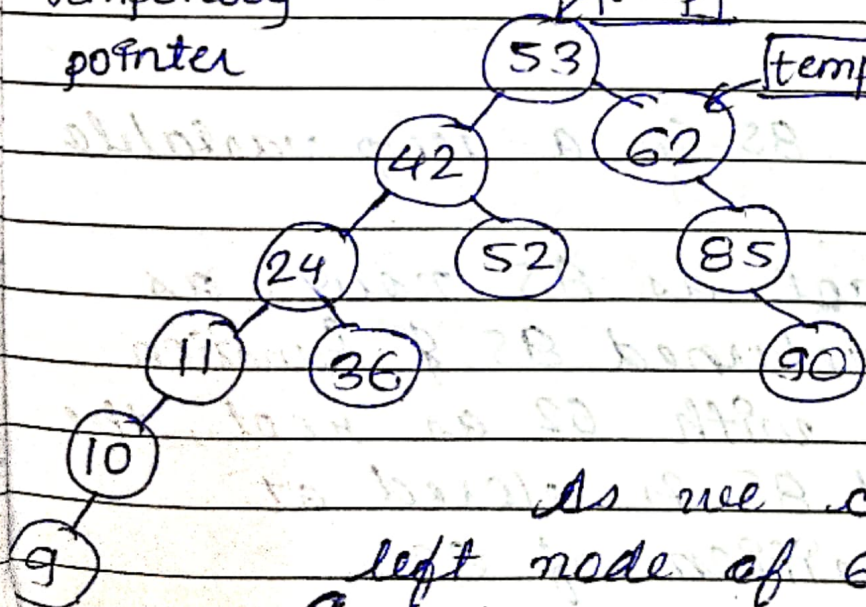 pointer
53
temp
42
62
24
52
85
11
36
90
10
As we
9
left node of